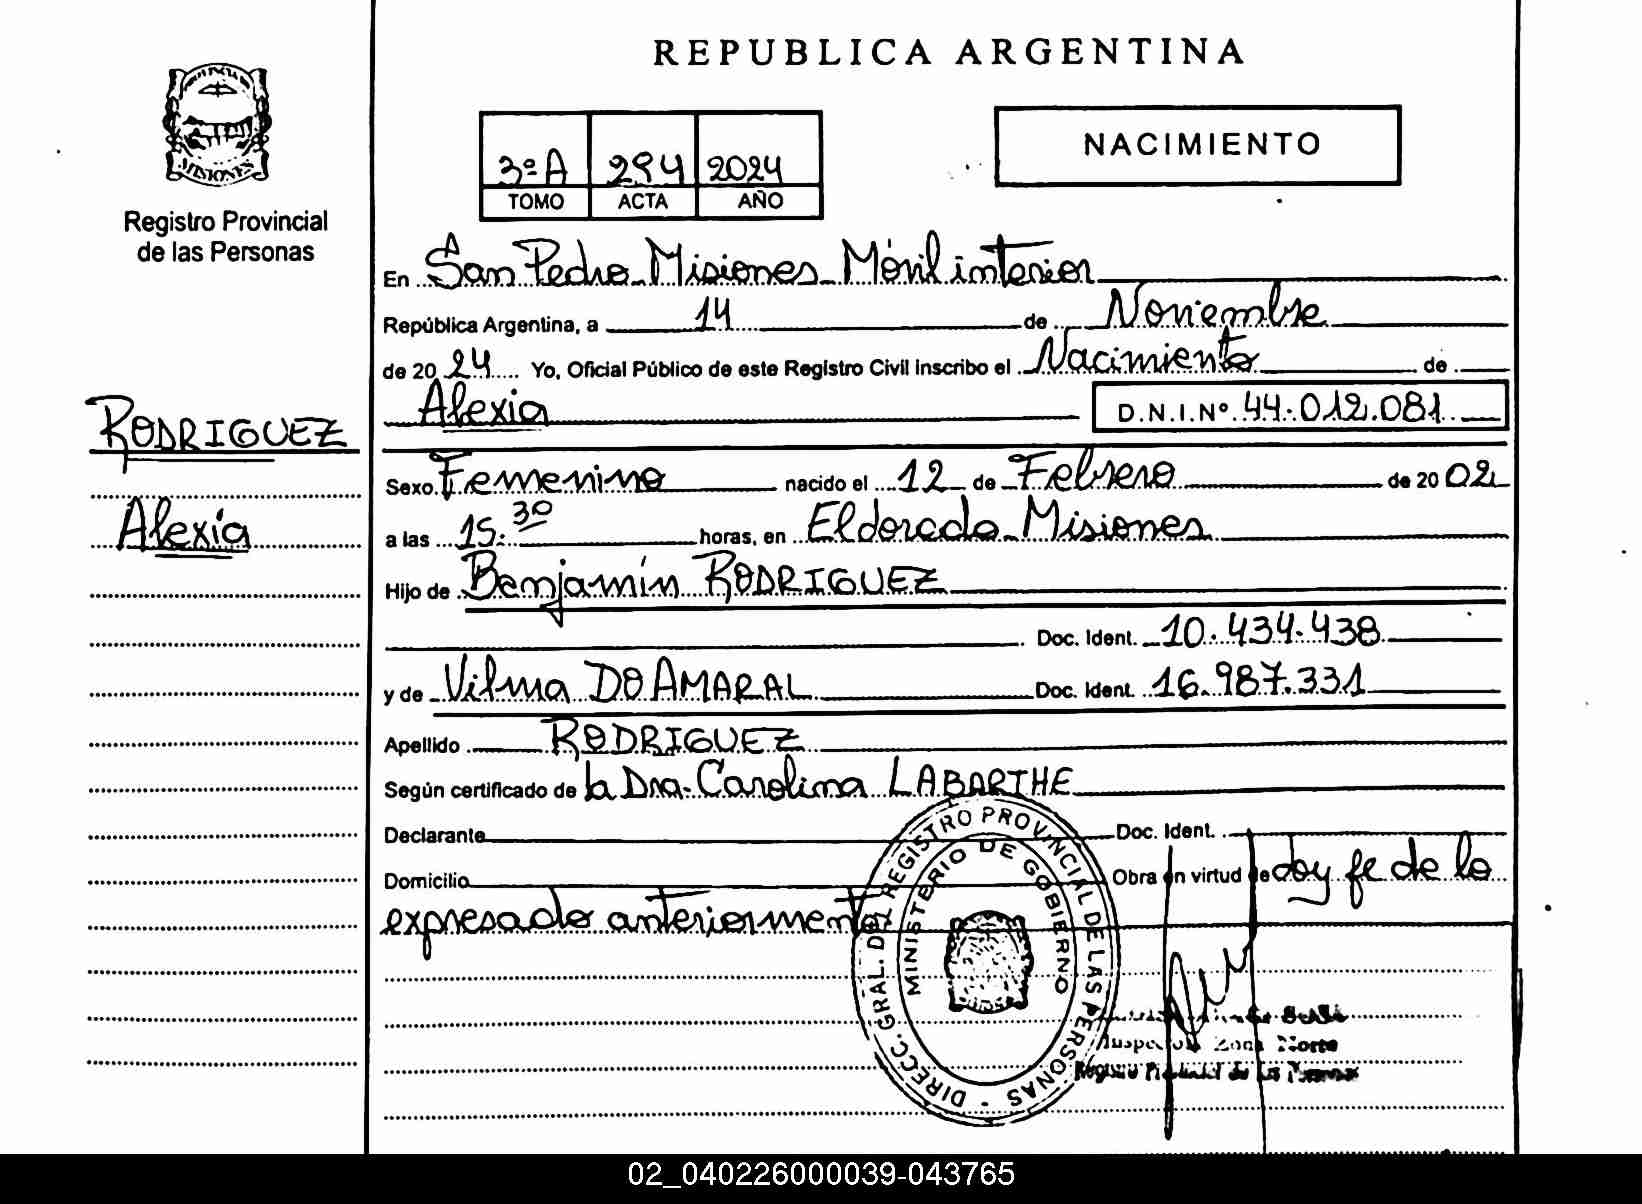 REPUBLICA ARGENTINA
MISIONES
Registro Provincial
de las Personas
3º A 294 2024
TOMO ACTA AÑO
NACIMIENTO
En San Pedro Misiones Móvil interior
República Argentina, a 14 de Noviembre
de 20 24 Yo, Oficial Público de este Registro Civil Inscribo el Nacimiento de
Alexia D.N.I.Nº 44.012.081
RODRIGUEZ
Alexia
Sexo Femenino nacido el 12 de Febrero de 20 02
a las 15:30 horas, en Eldorado Misiones
Hijo de Benjamín RODRIGUEZ
Doc. Ident. 10.434.438
y de Vilma DO AMARAL Doc. Ident. 16.987.331
Apellido RODRIGUEZ
Según certificado de la Dra. Carolina LABARTHE
Declarante Doc. Ident.
Domicilio Obra en virtud de doy fe de lo
expresado anteriormente
DIRECC. GRAL. DEL REGISTRO PROVINCIAL DE LAS PERSONAS
MINISTERIO DE GOBIERNO
Inspectora Zona Norte
Registro Provincial de las Personas
02_040226000039-043765